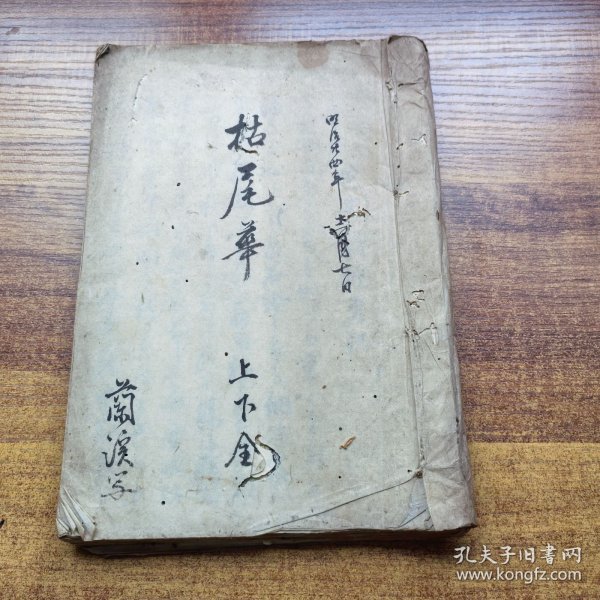 明治廿四年 十二月七日
枯尾華 上下全
蘭溪写
孔夫子旧书网
www.kongfz.com